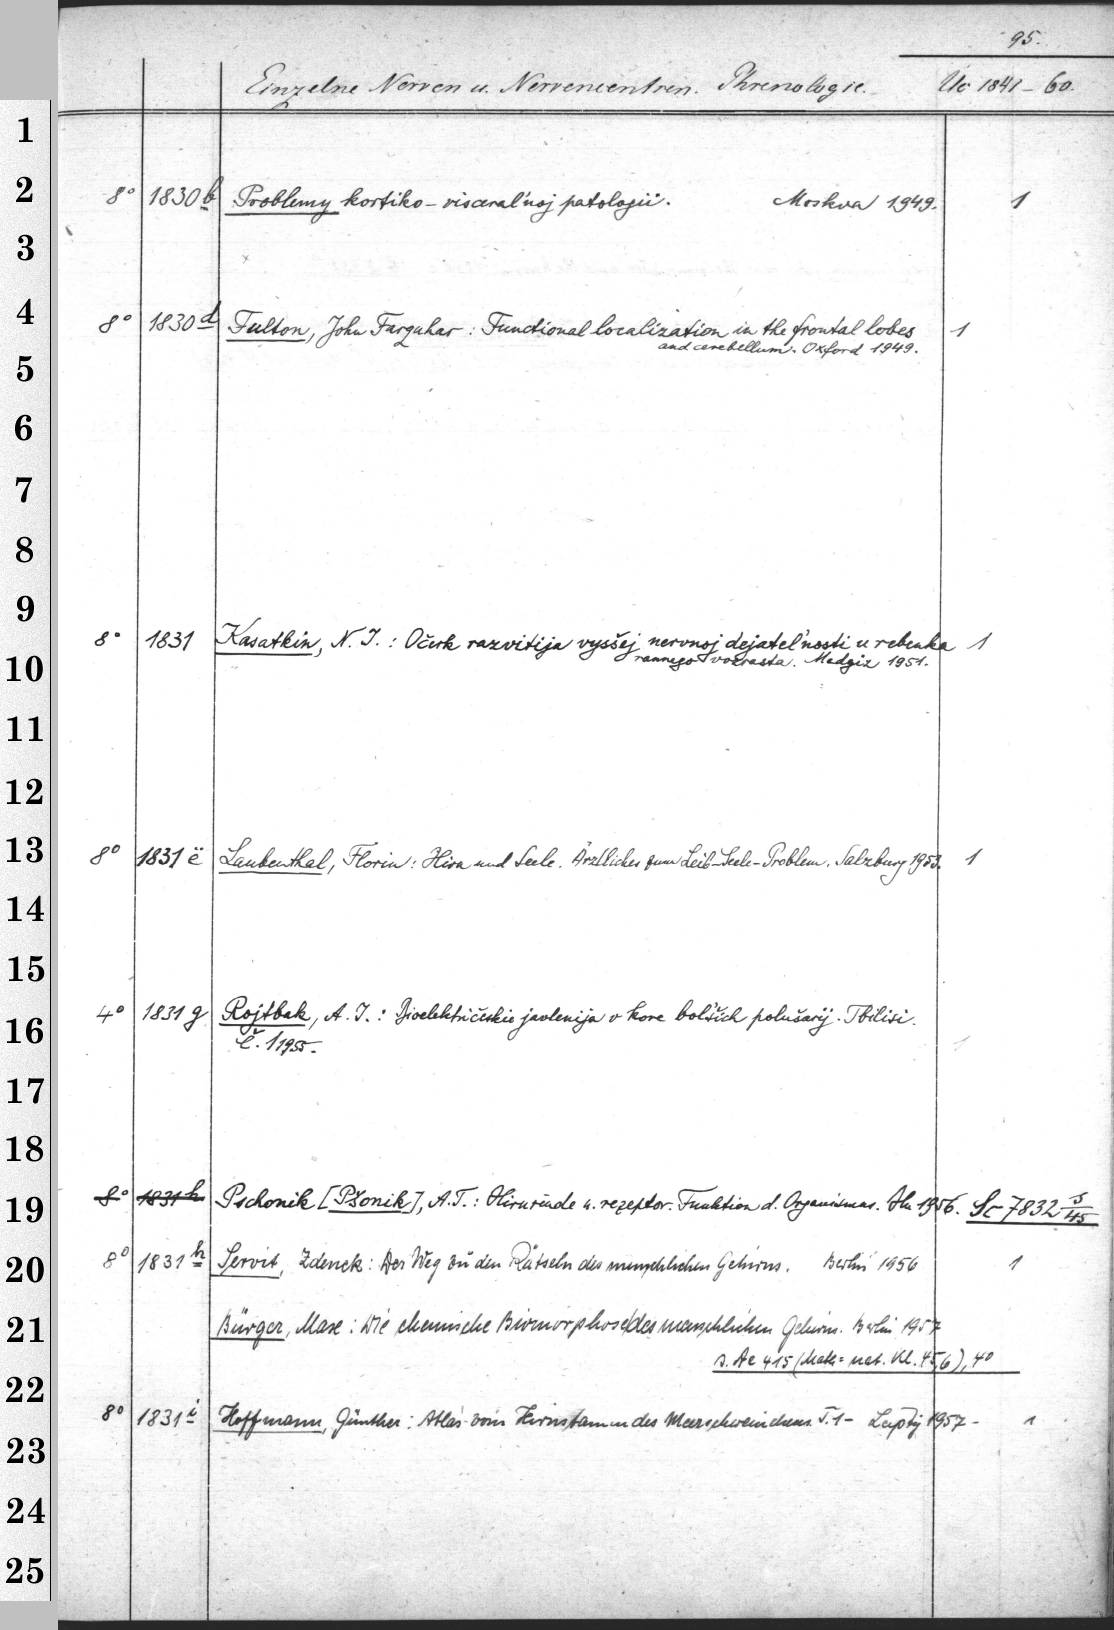 95.
Einzelne Nerven u. Nervencentren. Phrenologie. Uc 1841-60.
1
2 8° 1830 b Problemy kortiko-visceral'noj patologii. Moskva 1949. 1
3
4 8° 1830 d Fulton, John Farquhar: Functional localization in the frontal lobes 1
and cerebellum. Oxford 1949.
5
6
7
8
9
8° 1831 Kasatkin, N. I.: Očerk razvitija vysšej nervnoj dejatel'nosti u rebenka 1
10 rannego vozrasta. Medgiz 1951.
11
12
13 8° 1831 ë Laubenthal, Florin: Hirn und Seele. Ärztliches zum Leib-Seele-Problem. Salzburg 1953. 1
14
15
16 4° 1831 g Rojtbak, A. I.: Bioelektričeskie javlenija v kore bol'šich polušarij. Tbilisi.
Č. 1 1955-
17
18
19 8° 1831 h Pschonik [Pšonik], A. T.: Hirnrinde u. rezeptor. Funktion d. Organismus. 1956. Sc 7832 5/45
20 8° 1831 h Servit, Zdenek: Der Weg zu den Rätseln des menschlichen Gehirns. Berlin 1956 1
21 Bürger, Max: Die chemische Biomorphose des menschlichen Gehirns. Berlin 1957
s. Ae 415 (Math= nat. Kl. 45,6), 4°
22
8° 1831 i Hoffmann, Günther: Atlas vom Hirnstamm des Meerschweinchens T. 1- Leipzig 1957- 1
23
24
25